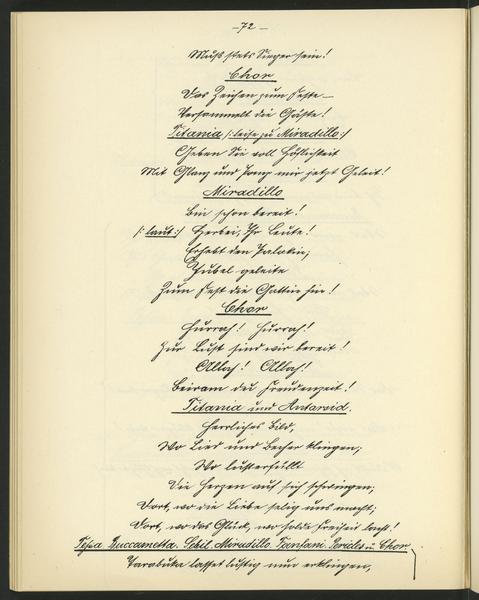 -72-
Muß stets Sieger sein!
Chor
Das Zeichen zum Feste-
Versammelt die Gäste!
Titania /: leise zu Miradillo :/
Geben Sie voll Höflichkeit
Mit Glanz und Pomp mir jetzt Geleit!
Miradillo
Bin schon bereit!
/: laut :/ Herbei, Ihr Leute!
Erhebt den Palakin;
Jubel geleite
Zum Fest die Gattin hin!
Chor
Hurrah! Hurrah!
Zur Lust sind wir bereit!
Allah! Allah!
Beiram du Freudenzeit!
Titania und Antarsid.
Herrliches Bild,
Wo Lied und Becher klingen;
Wo lusterfüllt
Die Herzen auf sich schwingen;
Dort, wo die Liebe selig uns macht;
Dort, wo das Glück, wo holde Freiheit lacht!
Tessa Buccametta. Sebil. Miradillo. Fanfani. Pericles u. Chor
Tarabuka lasset lustig nun erklingen,